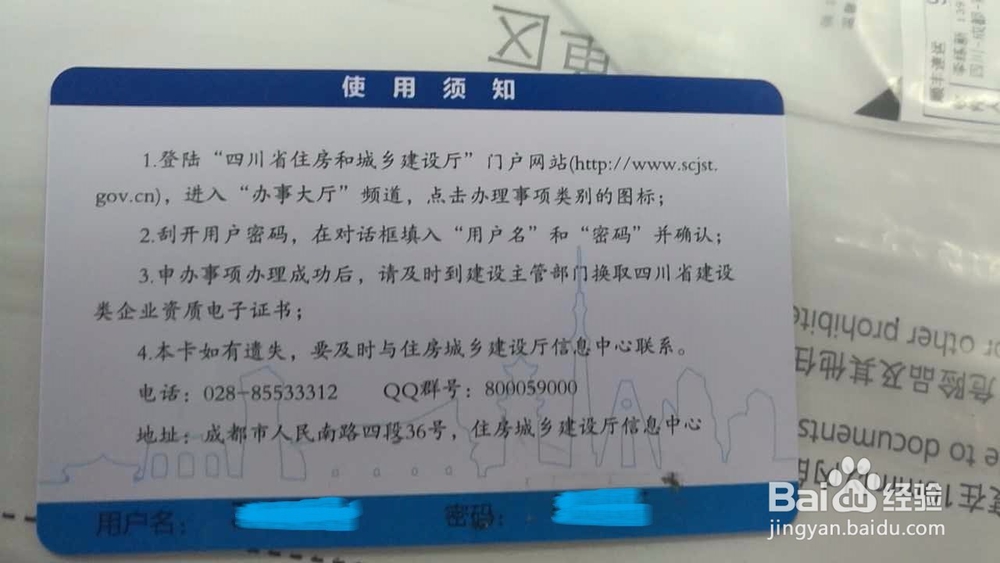 使用须知
1.登陆“四川省住房和城乡建设厅”门户网站(http://www.scjst.
gov.cn)，进入“办事大厅”频道，点击办理事项类别的图标；
2.刮开用户密码，在对话框填入“用户名”和“密码”并确认；
3.申办事项办理成功后，请及时到建设主管部门换取四川省建设
类企业资质电子证书；
4.本卡如有遗失，要及时与住房城乡建设厅信息中心联系。
电话：028-85533312 QQ群号：800059000
地址：成都市人民南路四段36号，住房城乡建设厅信息中心
用户名： 密码：
or other prohibite
危险品及其他
e to documents
Baidu经验
jingyan.baidu.com